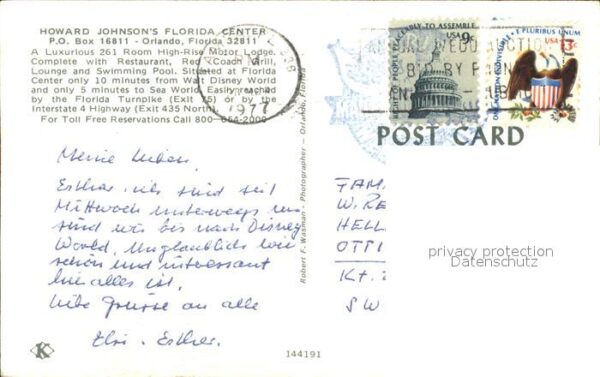 HOWARD JOHNSON'S FLORIDA CENTER
P.O. Box 16811 - Orlando, Florida 32811
A Luxurious 261 Room High-Rise Motor Lodge.
Complete with Restaurant, Red Coach Grill,
Lounge and Swimming Pool. Situated at Florida
Center only 10 minutes from Walt Disney World
and only 5 minutes to Sea World. Easily reached
by the Florida Turnpike (Exit 75) or by the
Interstate 4 Highway (Exit 435 North).
For Toll Free Reservations Call 800-654-2000
PM
1977
TO ASSEMBLE
USA 9c
E PLURIBUS UNUM
USA 13c
POST CARD
Meine Lieben
Esther, ich sind seit
Mittwoch unterwegs nun
sind wir bis nach Disney
World. Unglaublich wie
schön und interessant
hie alles ist.
Liebe Grüsse an alle
Elsi - Esther.
Robert F. Wasman - Photographer - Orlando, Florida
TAM
W. RE
HELL
OTTI
Kt. Z
SW
privacy protection
Datenschutz
K
144191